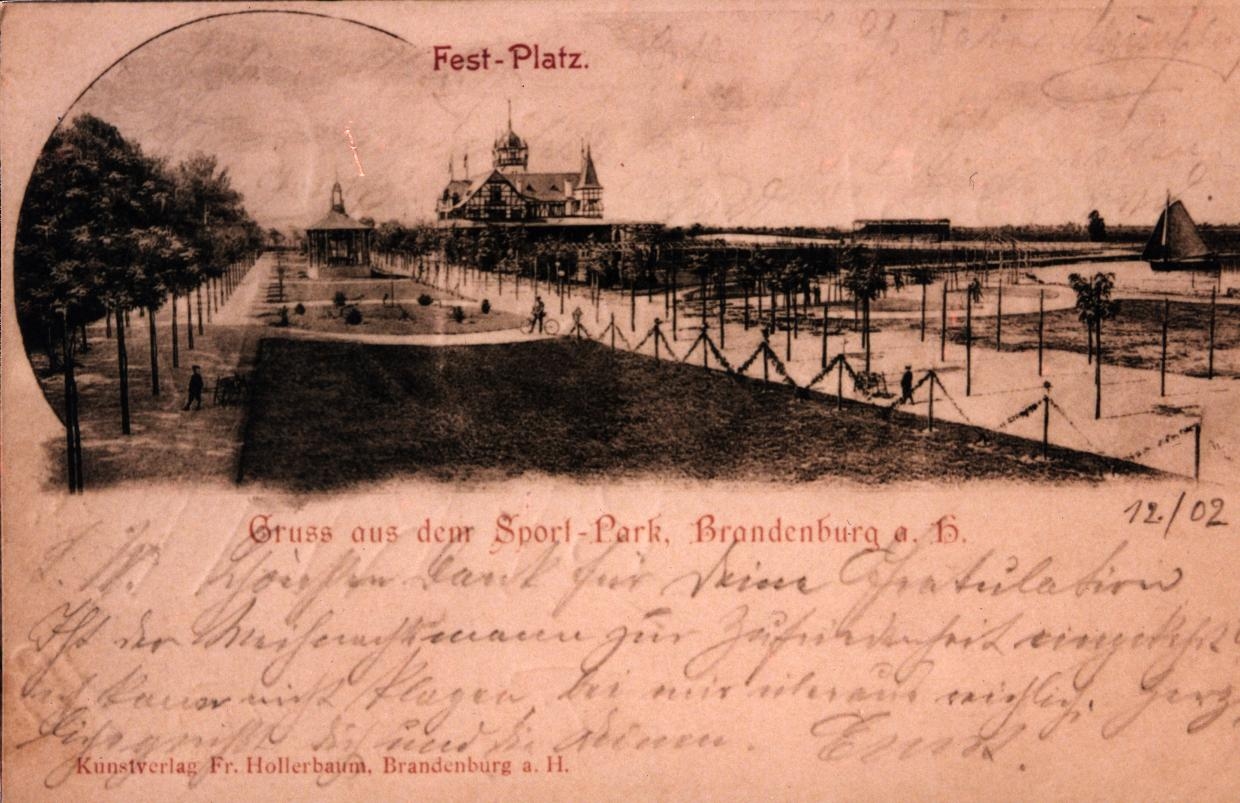 Fest-Platz.
Gruss aus dem Sport-Park, Brandenburg a. H.
12./02
L. W. Schönsten Dank für Deine Gratulation
Ist der Weihnachtsmann zur Zufriedenheit eingekehrt
ich kann nicht klagen, bei mir überaus reichlich. Herz
lichst grüßt dich und die deinen. Ernst.
Kunstverlag Fr. Hollerbaum, Brandenburg a. H.